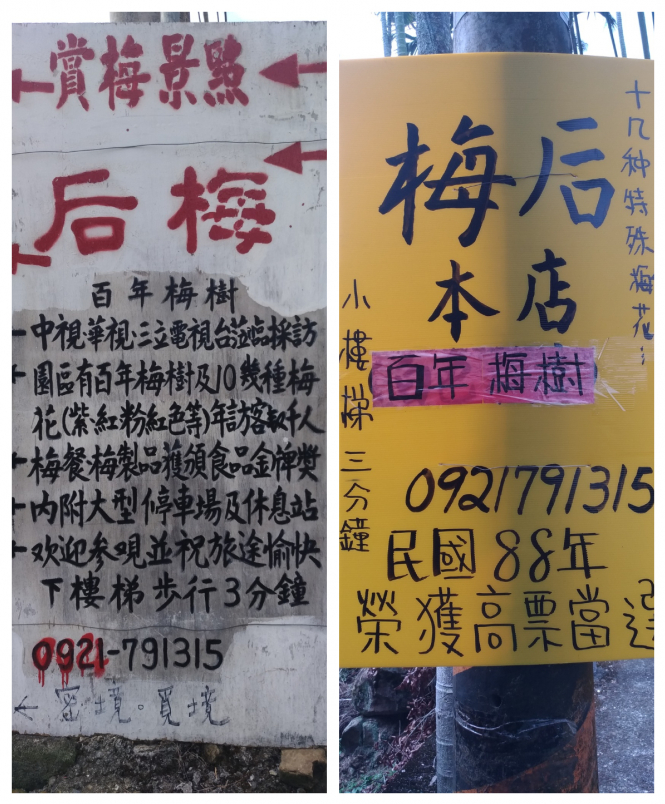 賞梅景點
后梅
百年梅樹
中視華視三立電視台蒞臨採訪
園區有百年梅樹及10幾種梅
花(紫紅粉紅色等)年訪客數千人
梅餐梅製品獲頒食品金牌獎
內附大型停車場及休息站
欢迎参現並祝旅途愉快
下樓梯步行3分鐘
0921-791315
← 密境。覓境
十几种特殊梅花
梅后
本店
小樓梯三分鐘
百年梅樹
0921791315
民國88年
榮獲高票當選